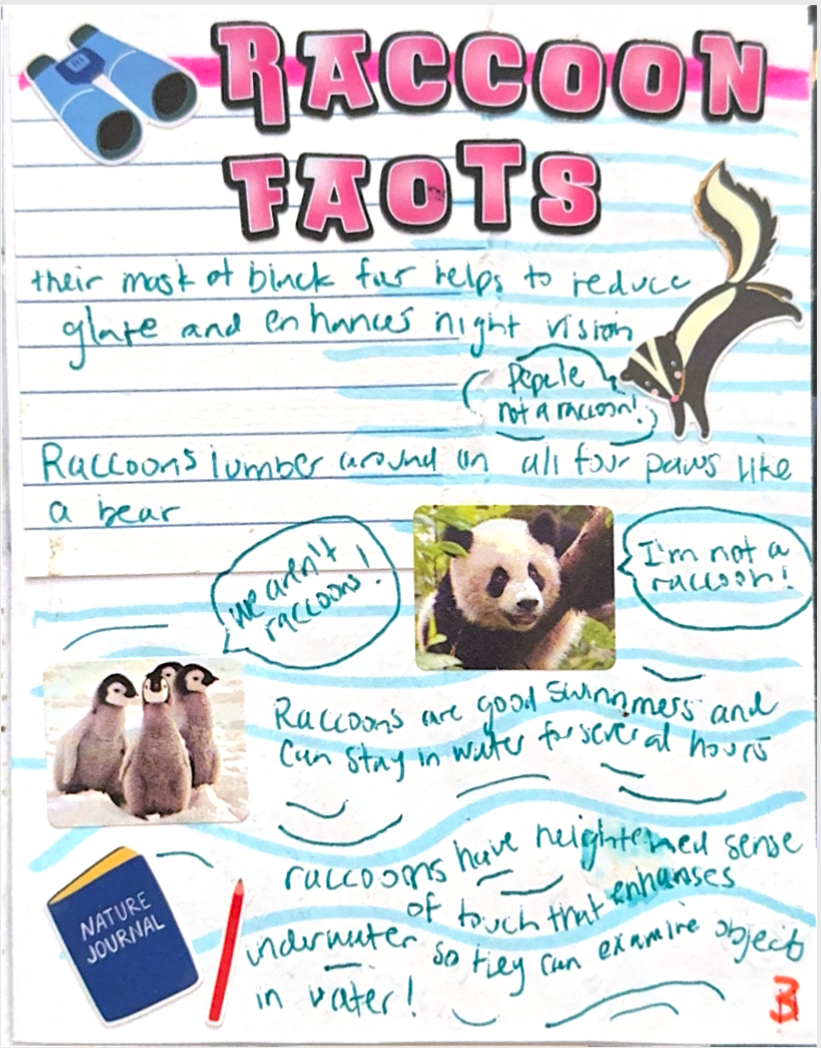 RACCOON
FACTS
their mask of black fur helps to reduce
glare and enhances night vision
Pepele
not a raccoon!
Raccoons lumber around on all four paws like
a bear
we aren't
raccoons!
I'm not a
raccoon!
Raccoons are good swimmers and
can stay in water for several hours
NATURE
JOURNAL
raccoons have heightened sense
of touch that enhanses
underwater so they can examine objects
in water!
3